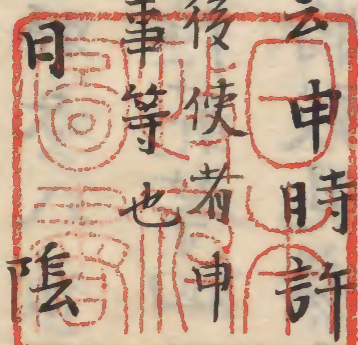 云申時許
後使者申
事等也
日 陰